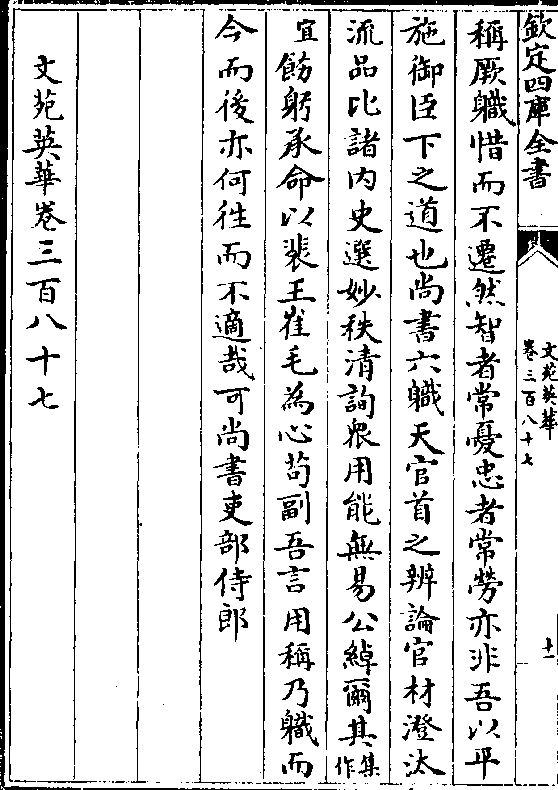 欽定四庫全書
文苑英華
卷三百八十七
十一
稱厥職惜而不遷然智者常憂忠者常勞亦非吾以平
施御臣下之道也尚書六職天官首之辨論官材澄汰
流品比諸内史選妙秩清詢衆用能無易公綽爾其集作
宜飭躬承命以裴王崔毛為心苟副吾言用稱乃職而
今而後亦何往而不適哉可尚書吏部侍郎
文苑英華卷三百八十七